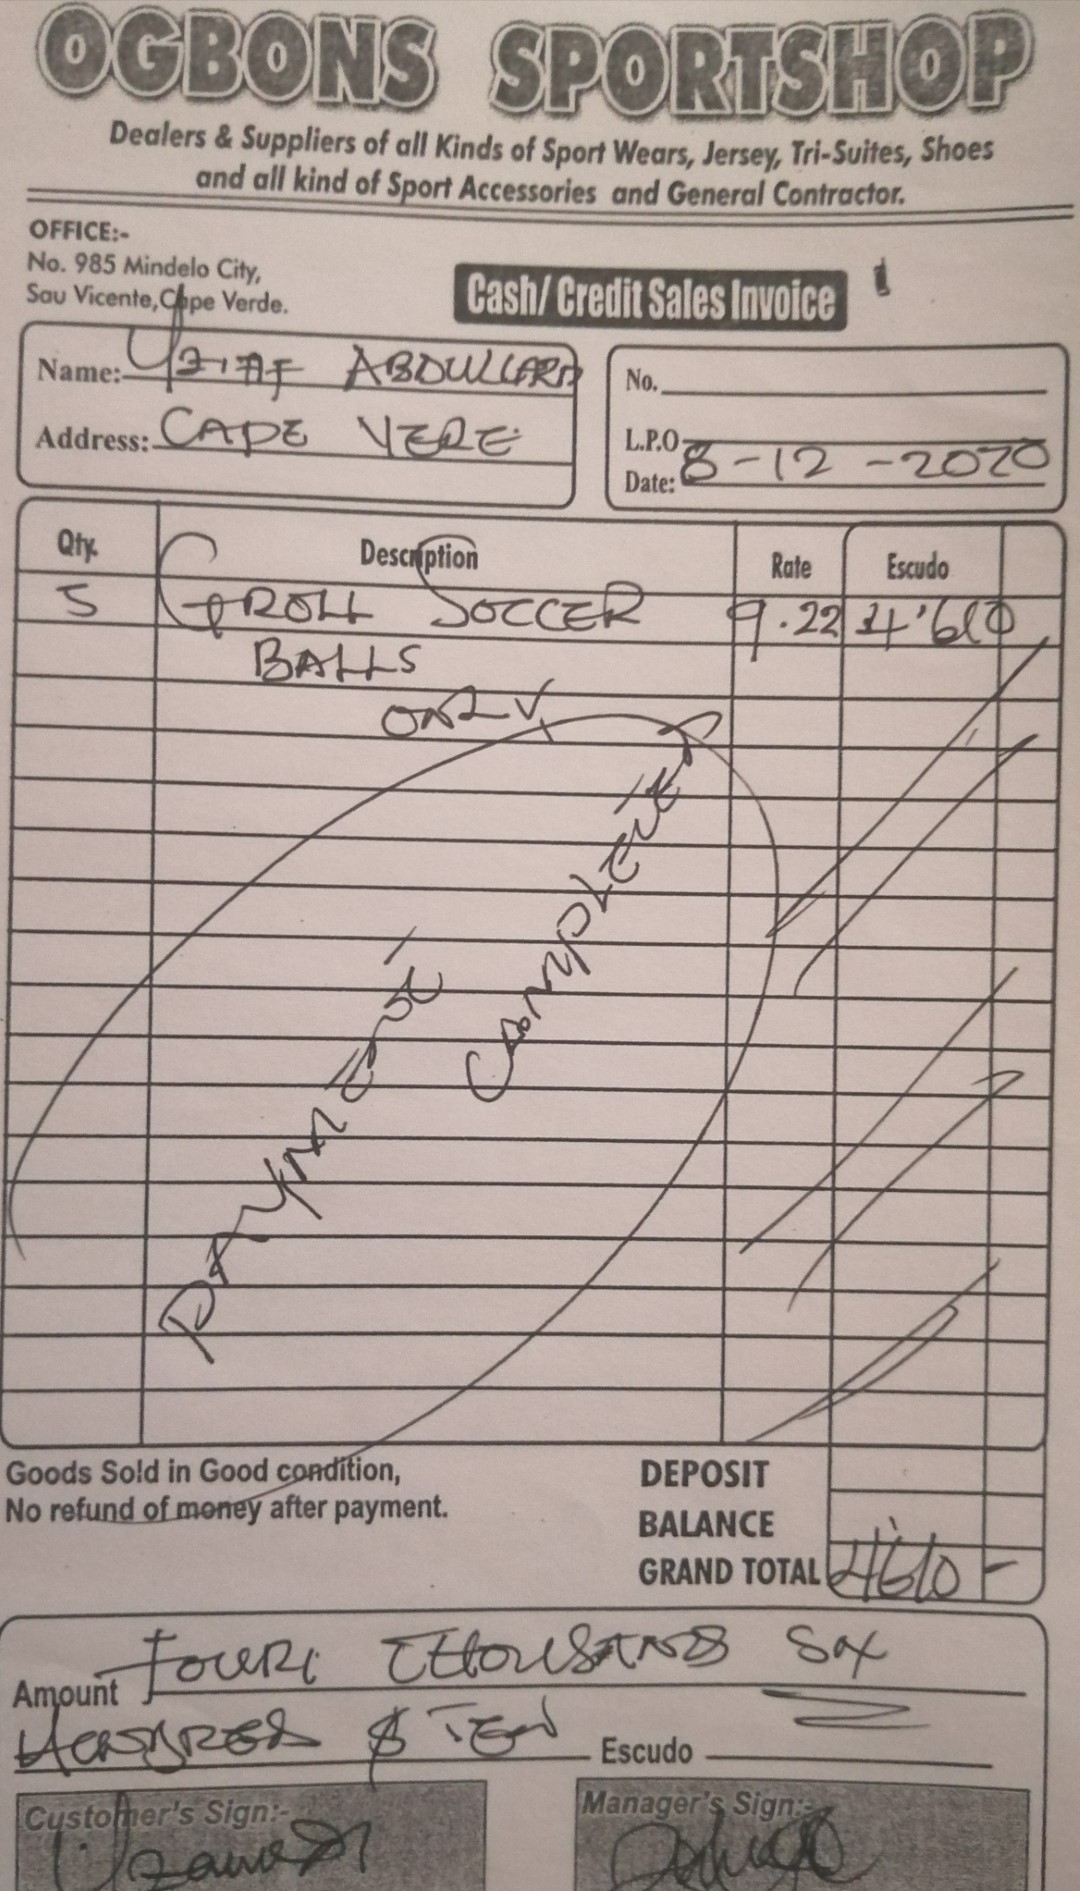 OGBONS SPORTSHOP
Dealers & Suppliers of all Kinds of Sport Wears, Jersey, Tri-Suites, Shoes
and all kind of Sport Accessories and General Contractor.
OFFICE:-
No. 985 Mindelo City,
Sau Vicente, Cape Verde.
Cash/ Credit Sales Invoice
Name: ABDULLARD
Address: CAPE VERE
No.
L.P.O
Date: 8-12-2020
Qty. Description Rate Escudo
5 GROLL SOCCER 9.22 4'610
BALLS
ONLY
PAYMENT
COMPLETE
Goods Sold in Good condition,
No refund of money after payment.
DEPOSIT
BALANCE
GRAND TOTAL 4'610 -
Amount FOUR THOUSANDS SIX
HUNDRED & TEN Escudo
Customer's Sign:-
Manager's Sign:-